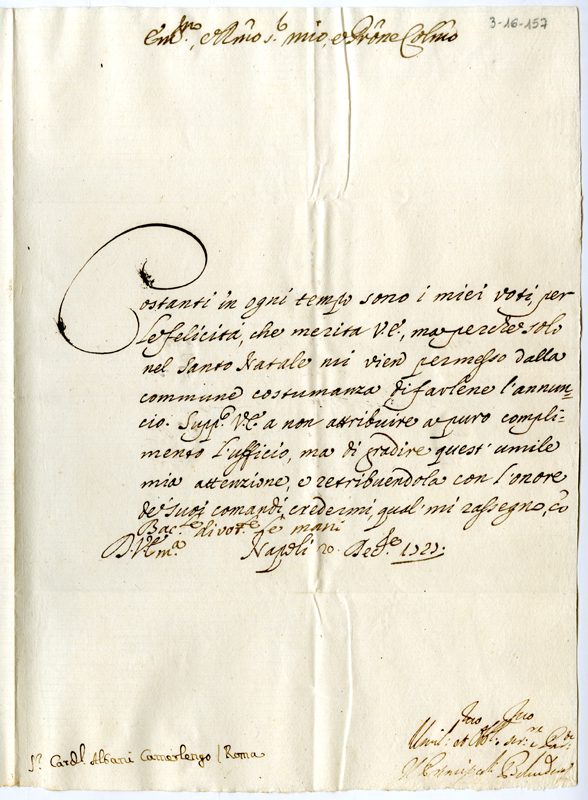 3-16-157
Em.mo, e Rmo Sr. mio, e Prône Colmo
Costanti in ogni tempo sono i miei voti, per
le felicità, che merita V.E., ma perche solo
nel Santo Natale mi vien permesso dalla
commune costumanza di farlene l'annun=
cio. Supp.co V.E. a non attribuire a puro compli=
mento l'ufficio, ma di gradire quest'umile
mia attenzione, e retribuendola con l'onore
de' suoi comandi, credermi, qual mi rassegno, cô
Bac.le divot.te le mani
D.V.Em.a Napoli 20. Dec.bre
Sr. Cardl Albani Camerlengo / Roma
Umil: et